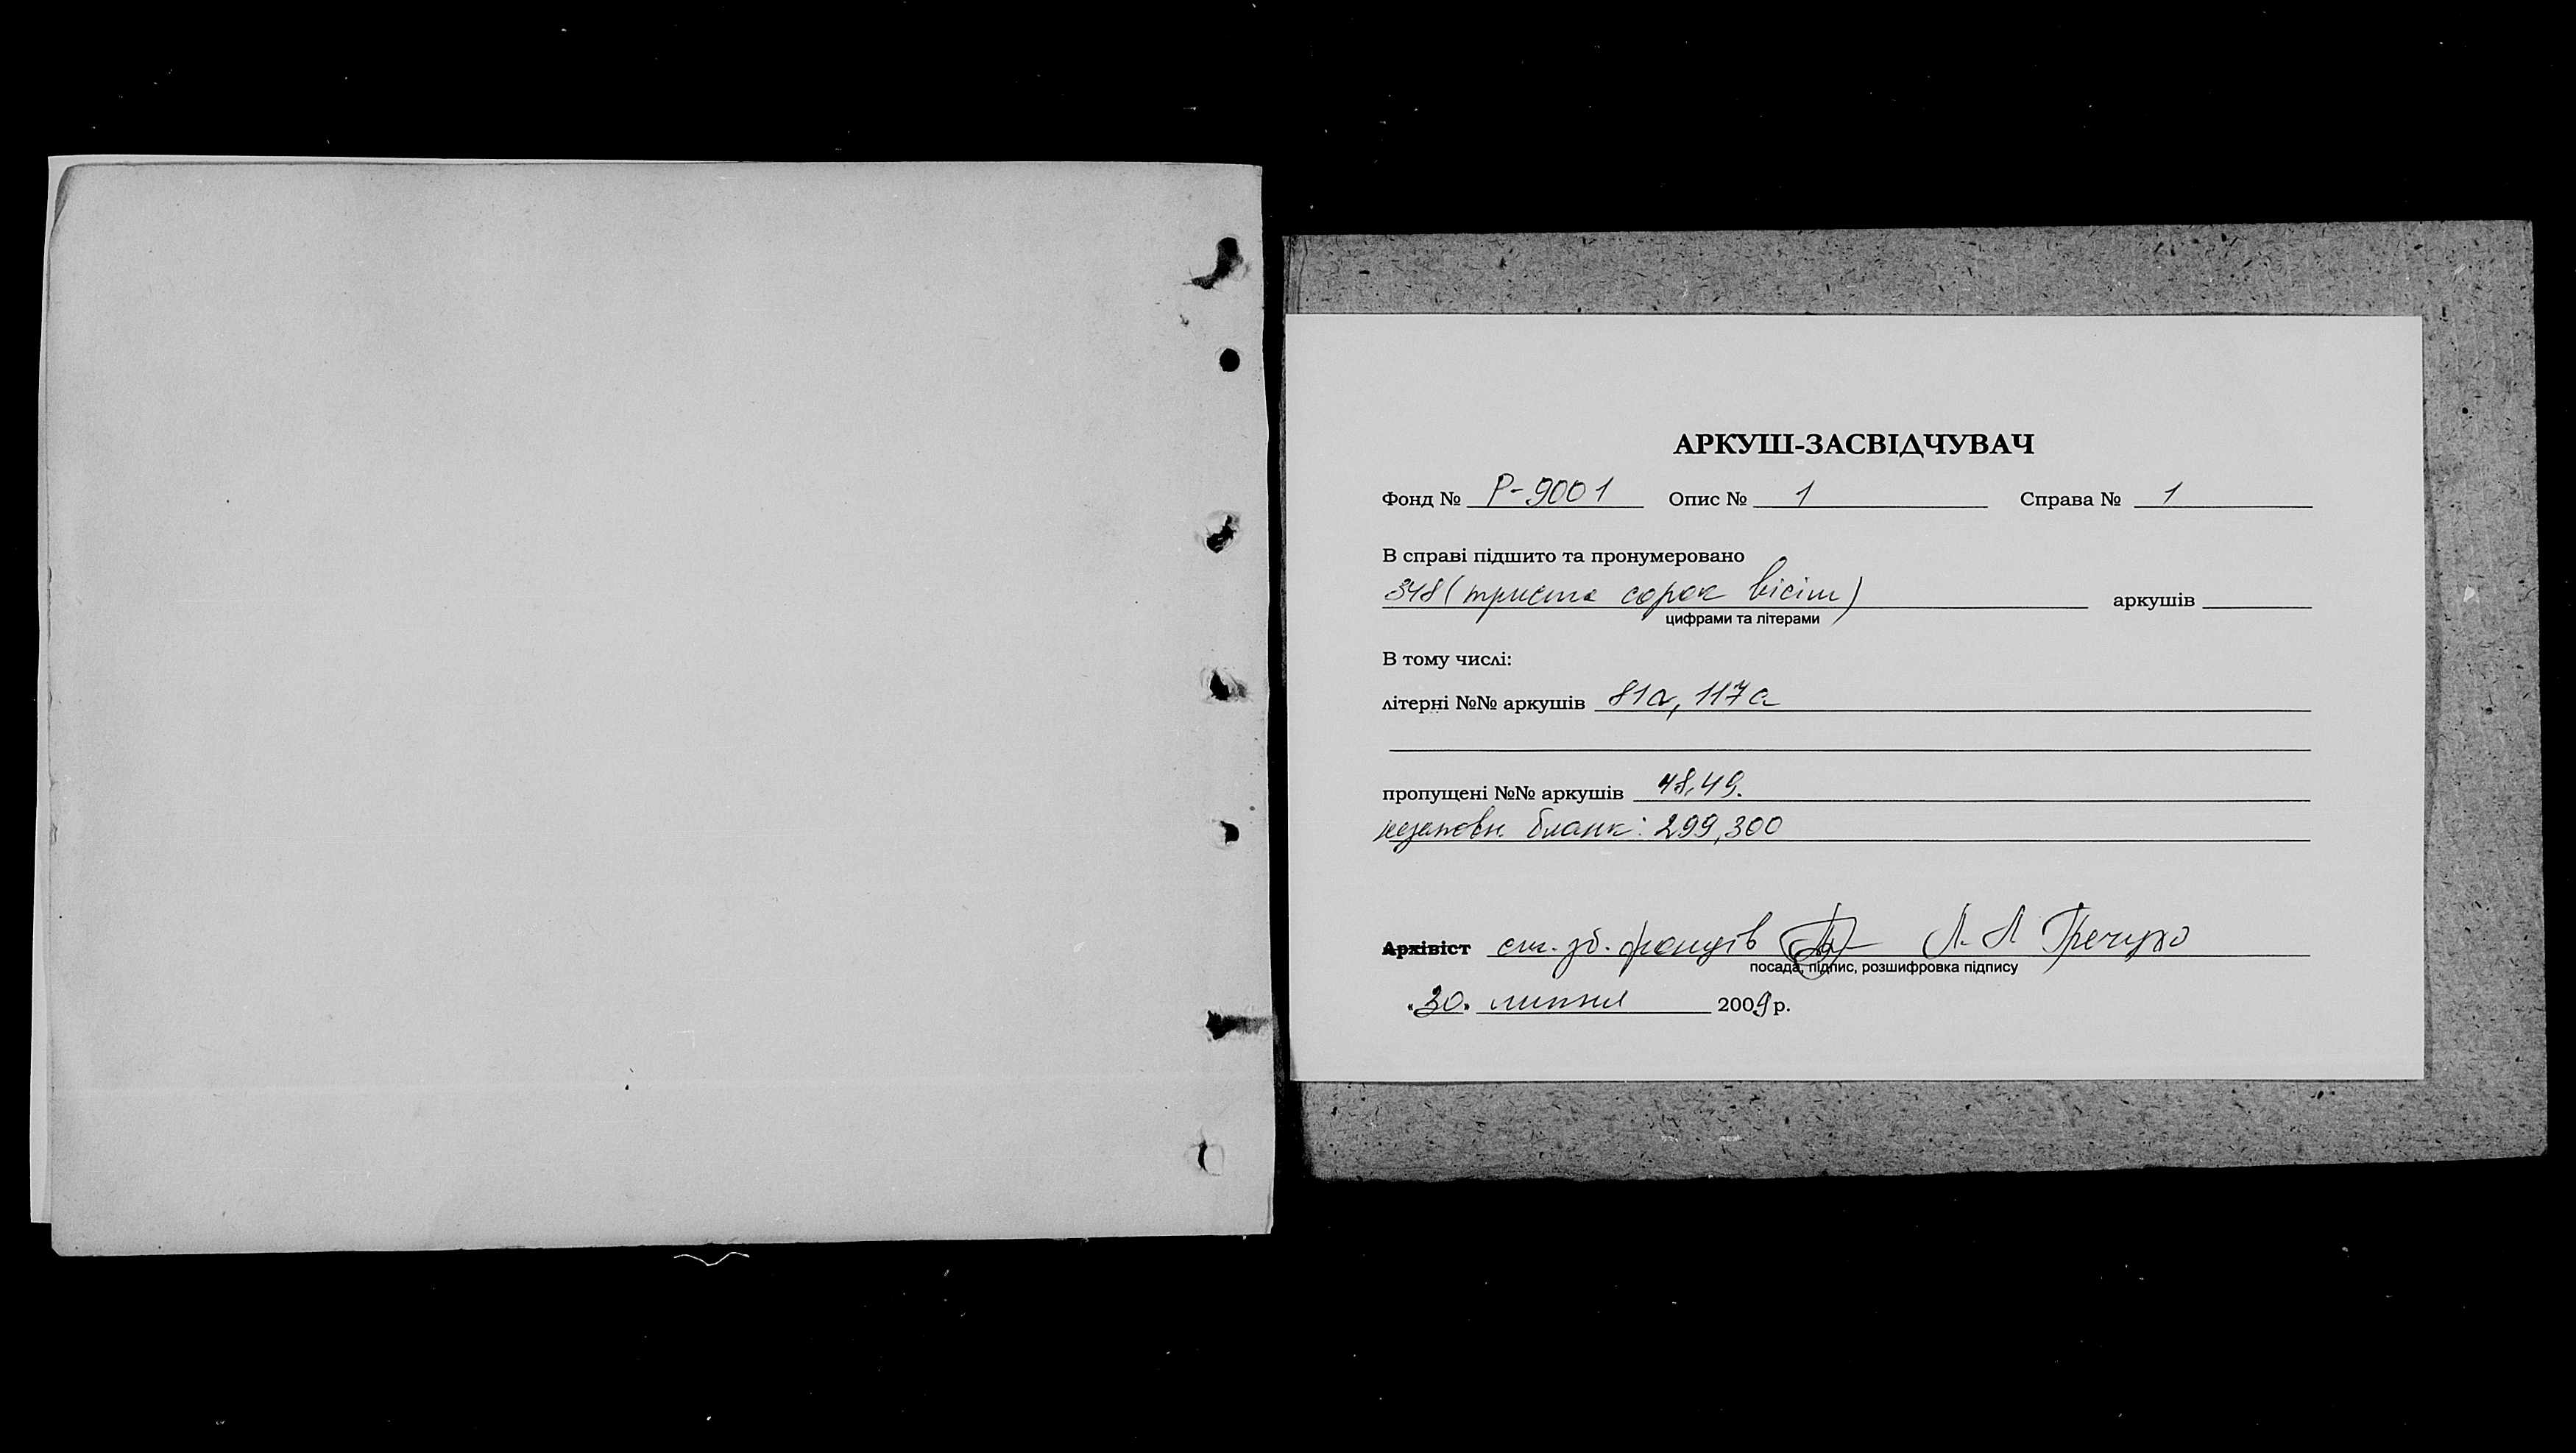 АРКУШ-ЗАСВІДЧУВАЧ
Фонд № Р-9001 Опис № 1 Справа № 1
В справі підшито та пронумеровано
348 (триста сорок вісім) аркушів
цифрами та літерами
В тому числі:
літерні №№ аркушів 81а, 117а
пропущені №№ аркушів 48,49.
незаповн. бланк: 299,300
Архівіст ст. зб. фондів Л. Л
посада, підпис, розшифровка підпису
«30» липня 2009 р.